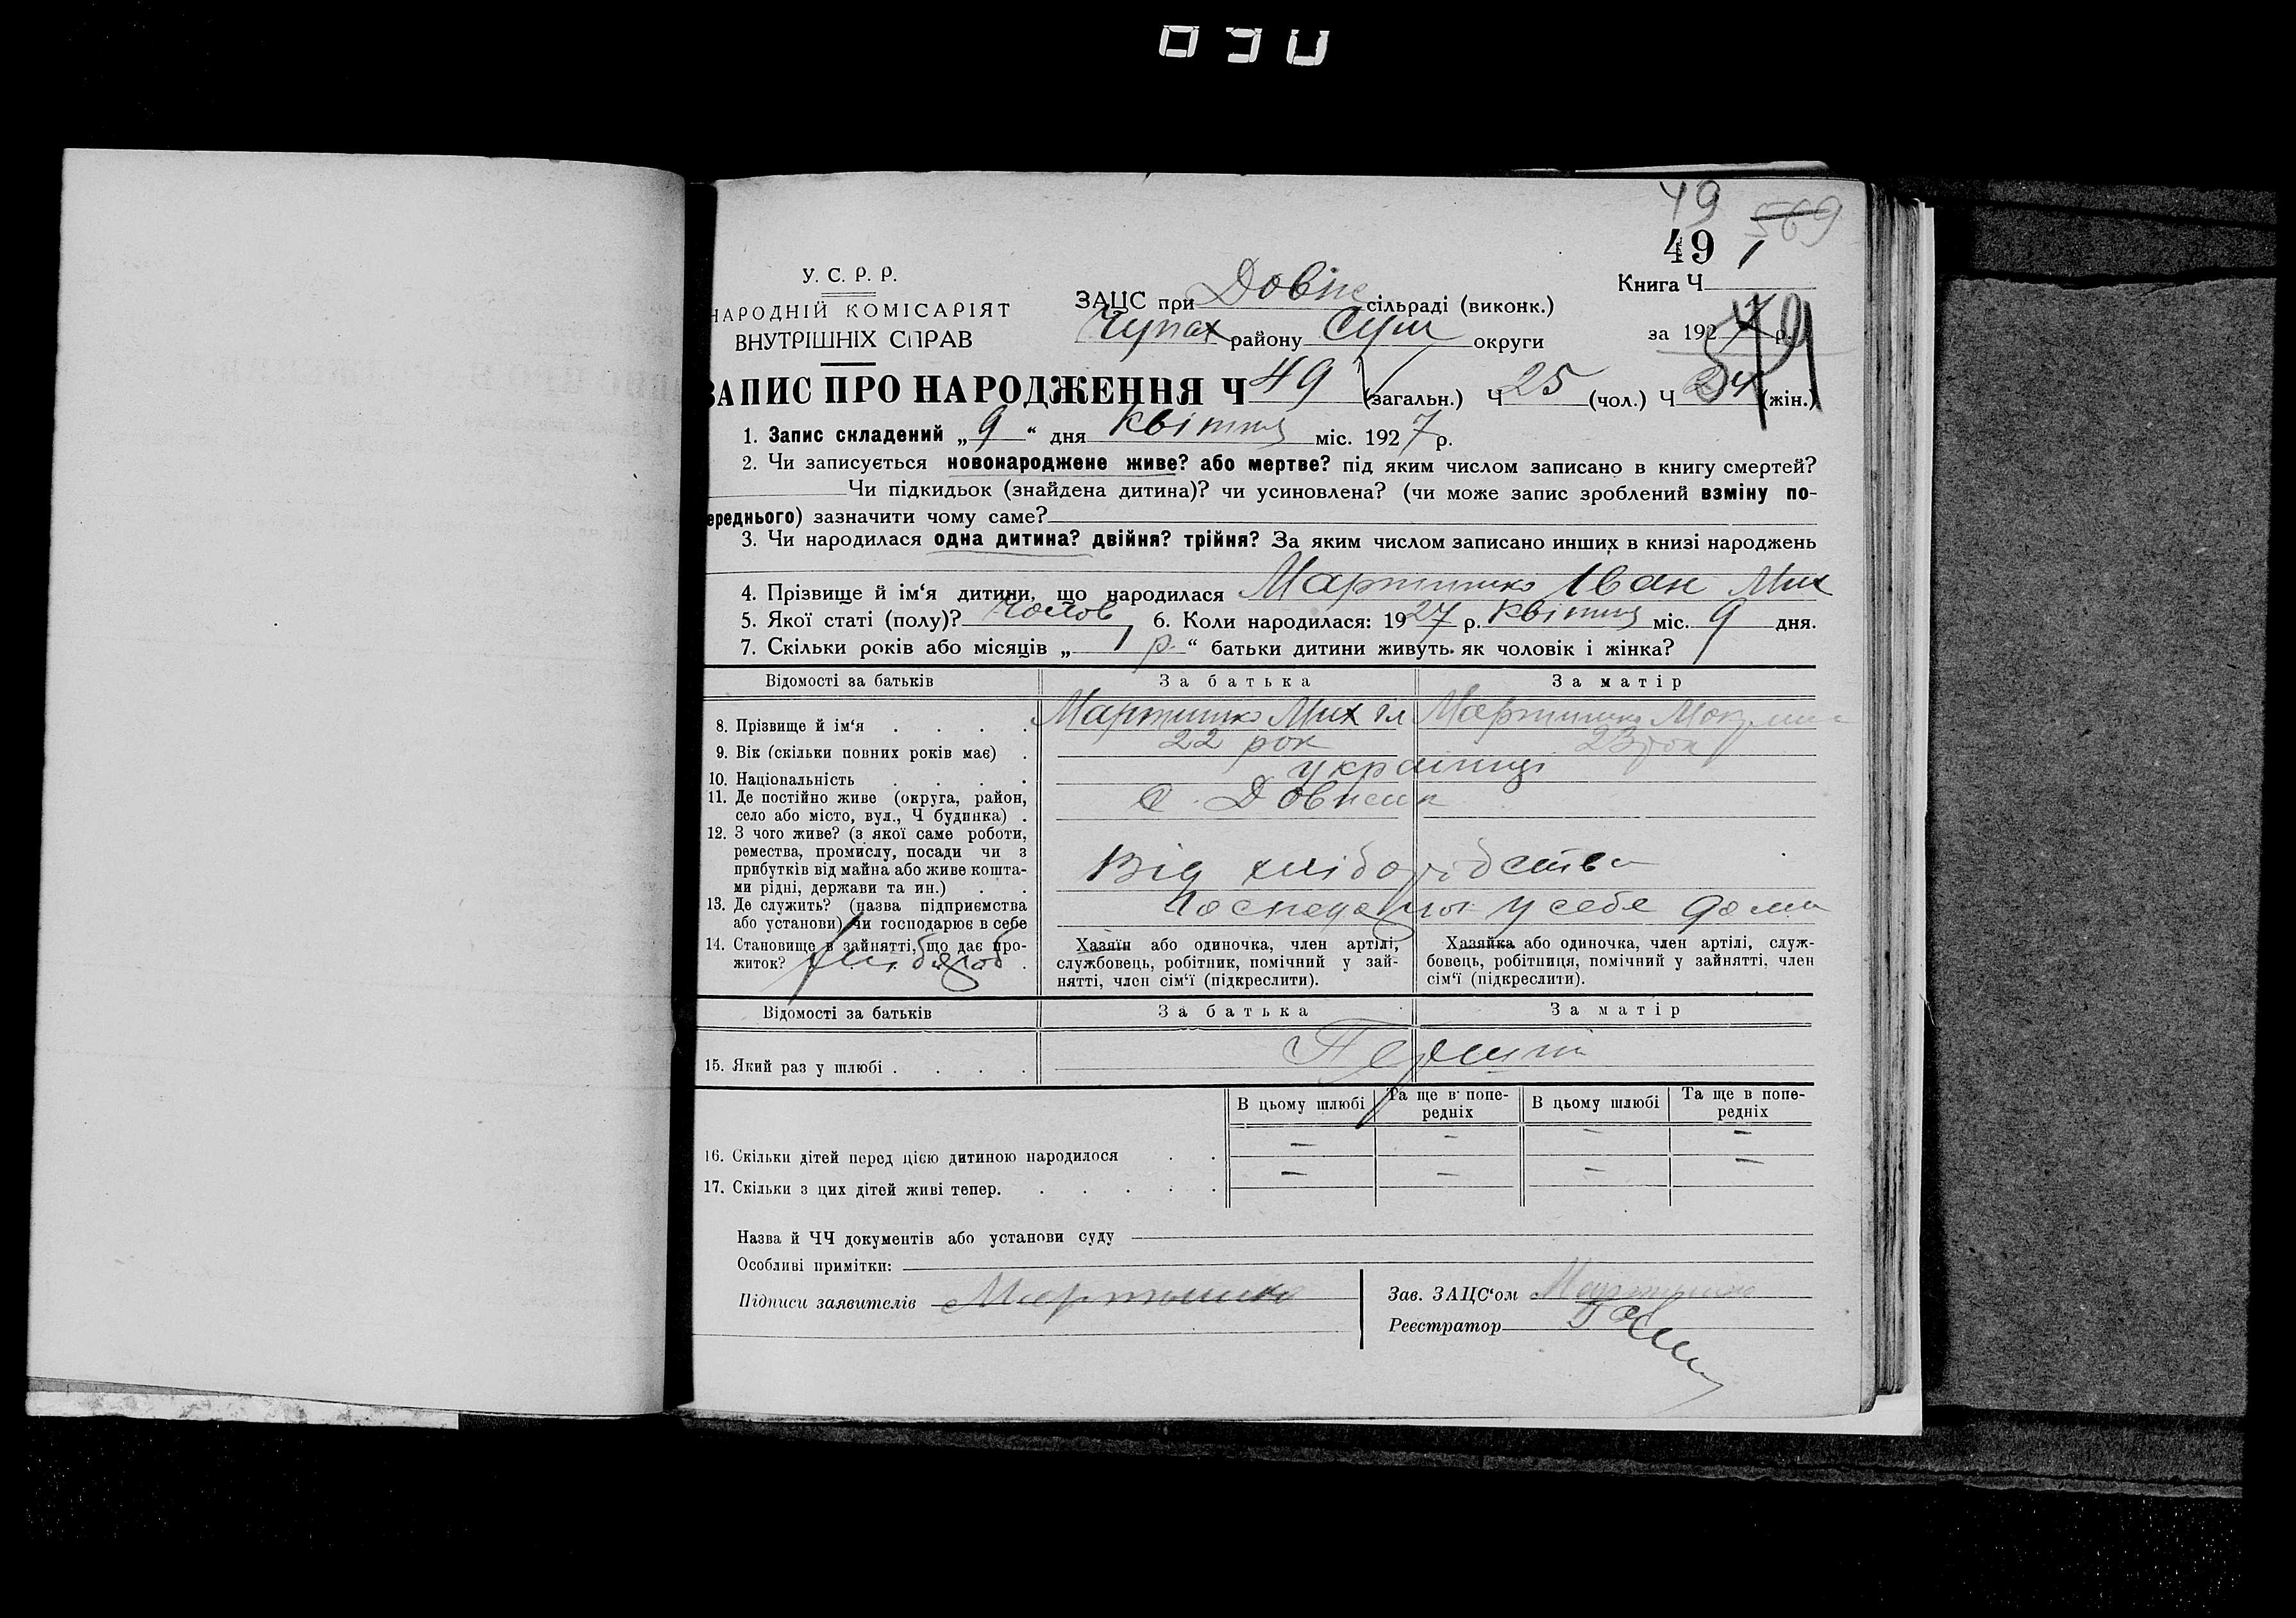 030
49 569
49
У. С. Р. Р.
НАРОДНІЙ КОМІСАРІЯТ
ВНУТРІШНІХ СПРАВ
ЗАЦС при Довж сільраді (виконк.)
Чупах району Сум округи
Книга Ч
за 1927 р.
ЗАПИС ПРО НАРОДЖЕННЯ Ч 49 (загальн.) Ч 25 (чол.) Ч 24 (жін.)
1. Запис складений „9“ дня квітня міс. 1927 р.
2. Чи записується новонароджене живе? або мертве? під яким числом записано в книгу смертей?
Чи підкидьок (знайдена дитина)? чи усиновлена? (чи може запис зроблений взміну по-
ереднього) зазначити чому саме?
3. Чи народилася одна дитина? двійня? трійня? За яким числом записано инших в книзі народжень
4. Прізвище й ім‘я дитини, що народилася Мартишко Іван Мих
5. Якої статі (полу)? чолов 6. Коли народилася: 1927 р. квітня міс. 9 дня.
7. Скільки років або місяців „1 р.“ батьки дитини живуть як чоловік і жінка?
Відомості за батьків За батька За матір
8. Прізвище й ім‘я Мартишко Мих Мартишко
9. Вік (скільки повних років має) 22 рок 23 рок
10. Національність українці
11. Де постійно живе (округа, район,
село або місто, вул., Ч будинка) с.
12. З чого живе? (з якої саме роботи,
ремества, промислу, посади чи з
прибутків від майна або живе кошта-
ми рідні, держави та ин.) Від хліборобства
13. Де служить? (назва підприємства
або установи) чи господарює в себе у себе дома
14. Становище в зайнятті, що дає про-
житок? хлібороб
Хазяїн або одиночка, член артілі,
службовець, робітник, помічний у зай-
нятті, член сім‘ї (підкреслити).
Хазяйка або одиночка, член артілі, служ-
бовець, робітниця, помічний у зайнятті, член
сім‘ї (підкреслити).
Відомості за батьків За батька За матір
15. Який раз у шлюбі
В цьому шлюбі Та ще в попе-
редніх В цьому шлюбі Та ще в попе-
редніх
16. Скільки дітей перед цією дитиною народилося – – – –
17. Скільки з цих дітей живі тепер. – – – –
Назва й ЧЧ документів або установи суду
Особливі примітки:
Підписи заявителів Мартишко
Зав. ЗАЦС‘ом
Реєстратор